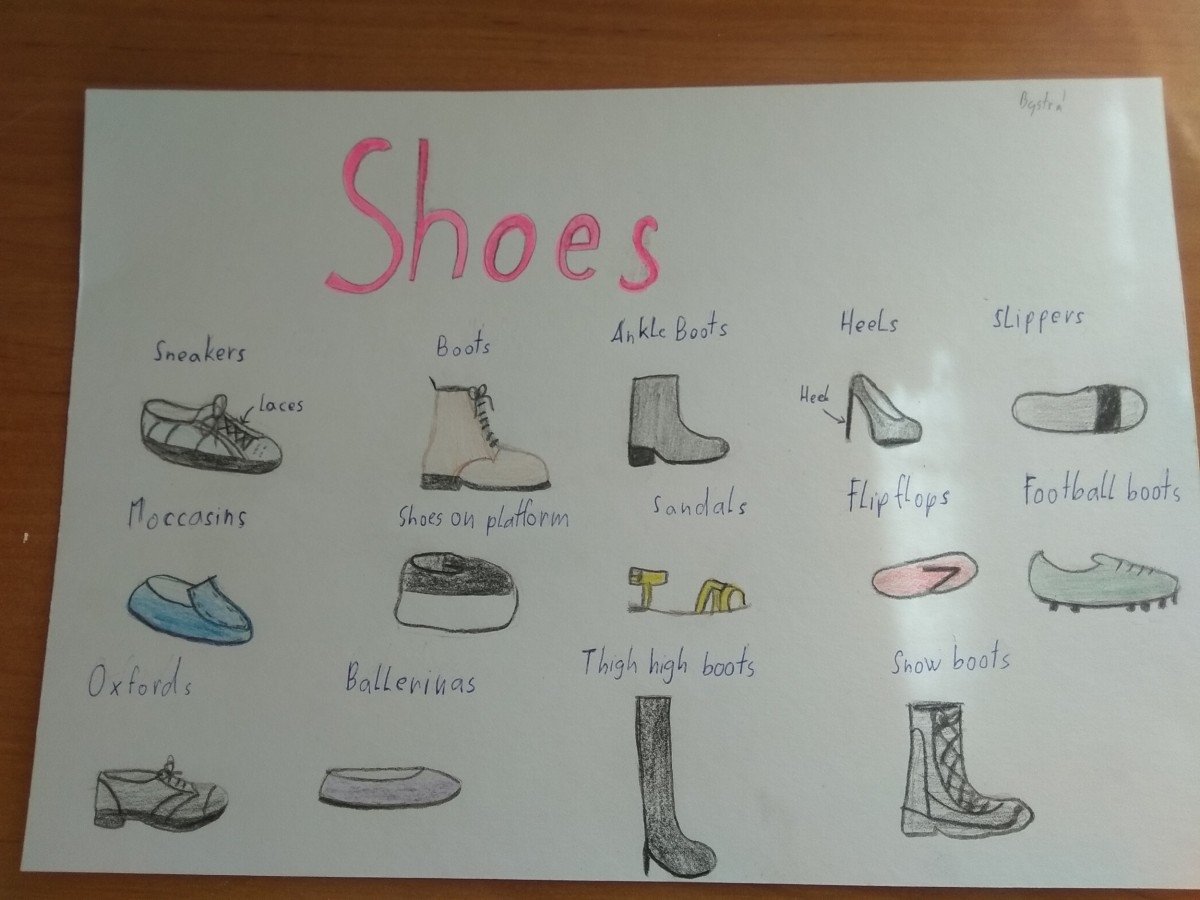 Bystrá
Shoes
Sneakers
Boots
Ankle Boots
Heels
Slippers
Laces
Heel
Moccasins
Shoes on platform
Sandals
Flip flops
Football boots
Oxfords
Ballerinas
Thigh high boots
Snow boots